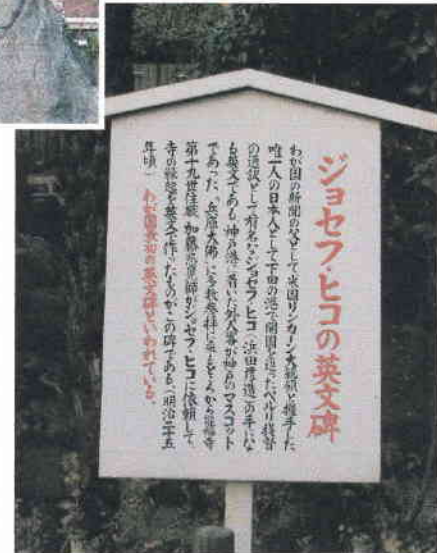 ジョセフ・ヒコの英文碑
わが国の新聞の父として米国リンカーン大統領と握手した
唯一人の日本人として下田の港で開国を迫ったペルリ提督
の通訳として有名なジョセフ・ヒコ(浜田彦造)の手にな
る英文である。神戸港に着いた外人客が神戸のマスコット
であった、兵庫大佛に多数参拝に来るところから能福寺
第十九世住職 加藤 師がジョセフ・ヒコに依頼して、
寺の縁起を英文で作ったものがこの碑である。(明治二十五
年頃)わが国最初の英文碑といわれている。